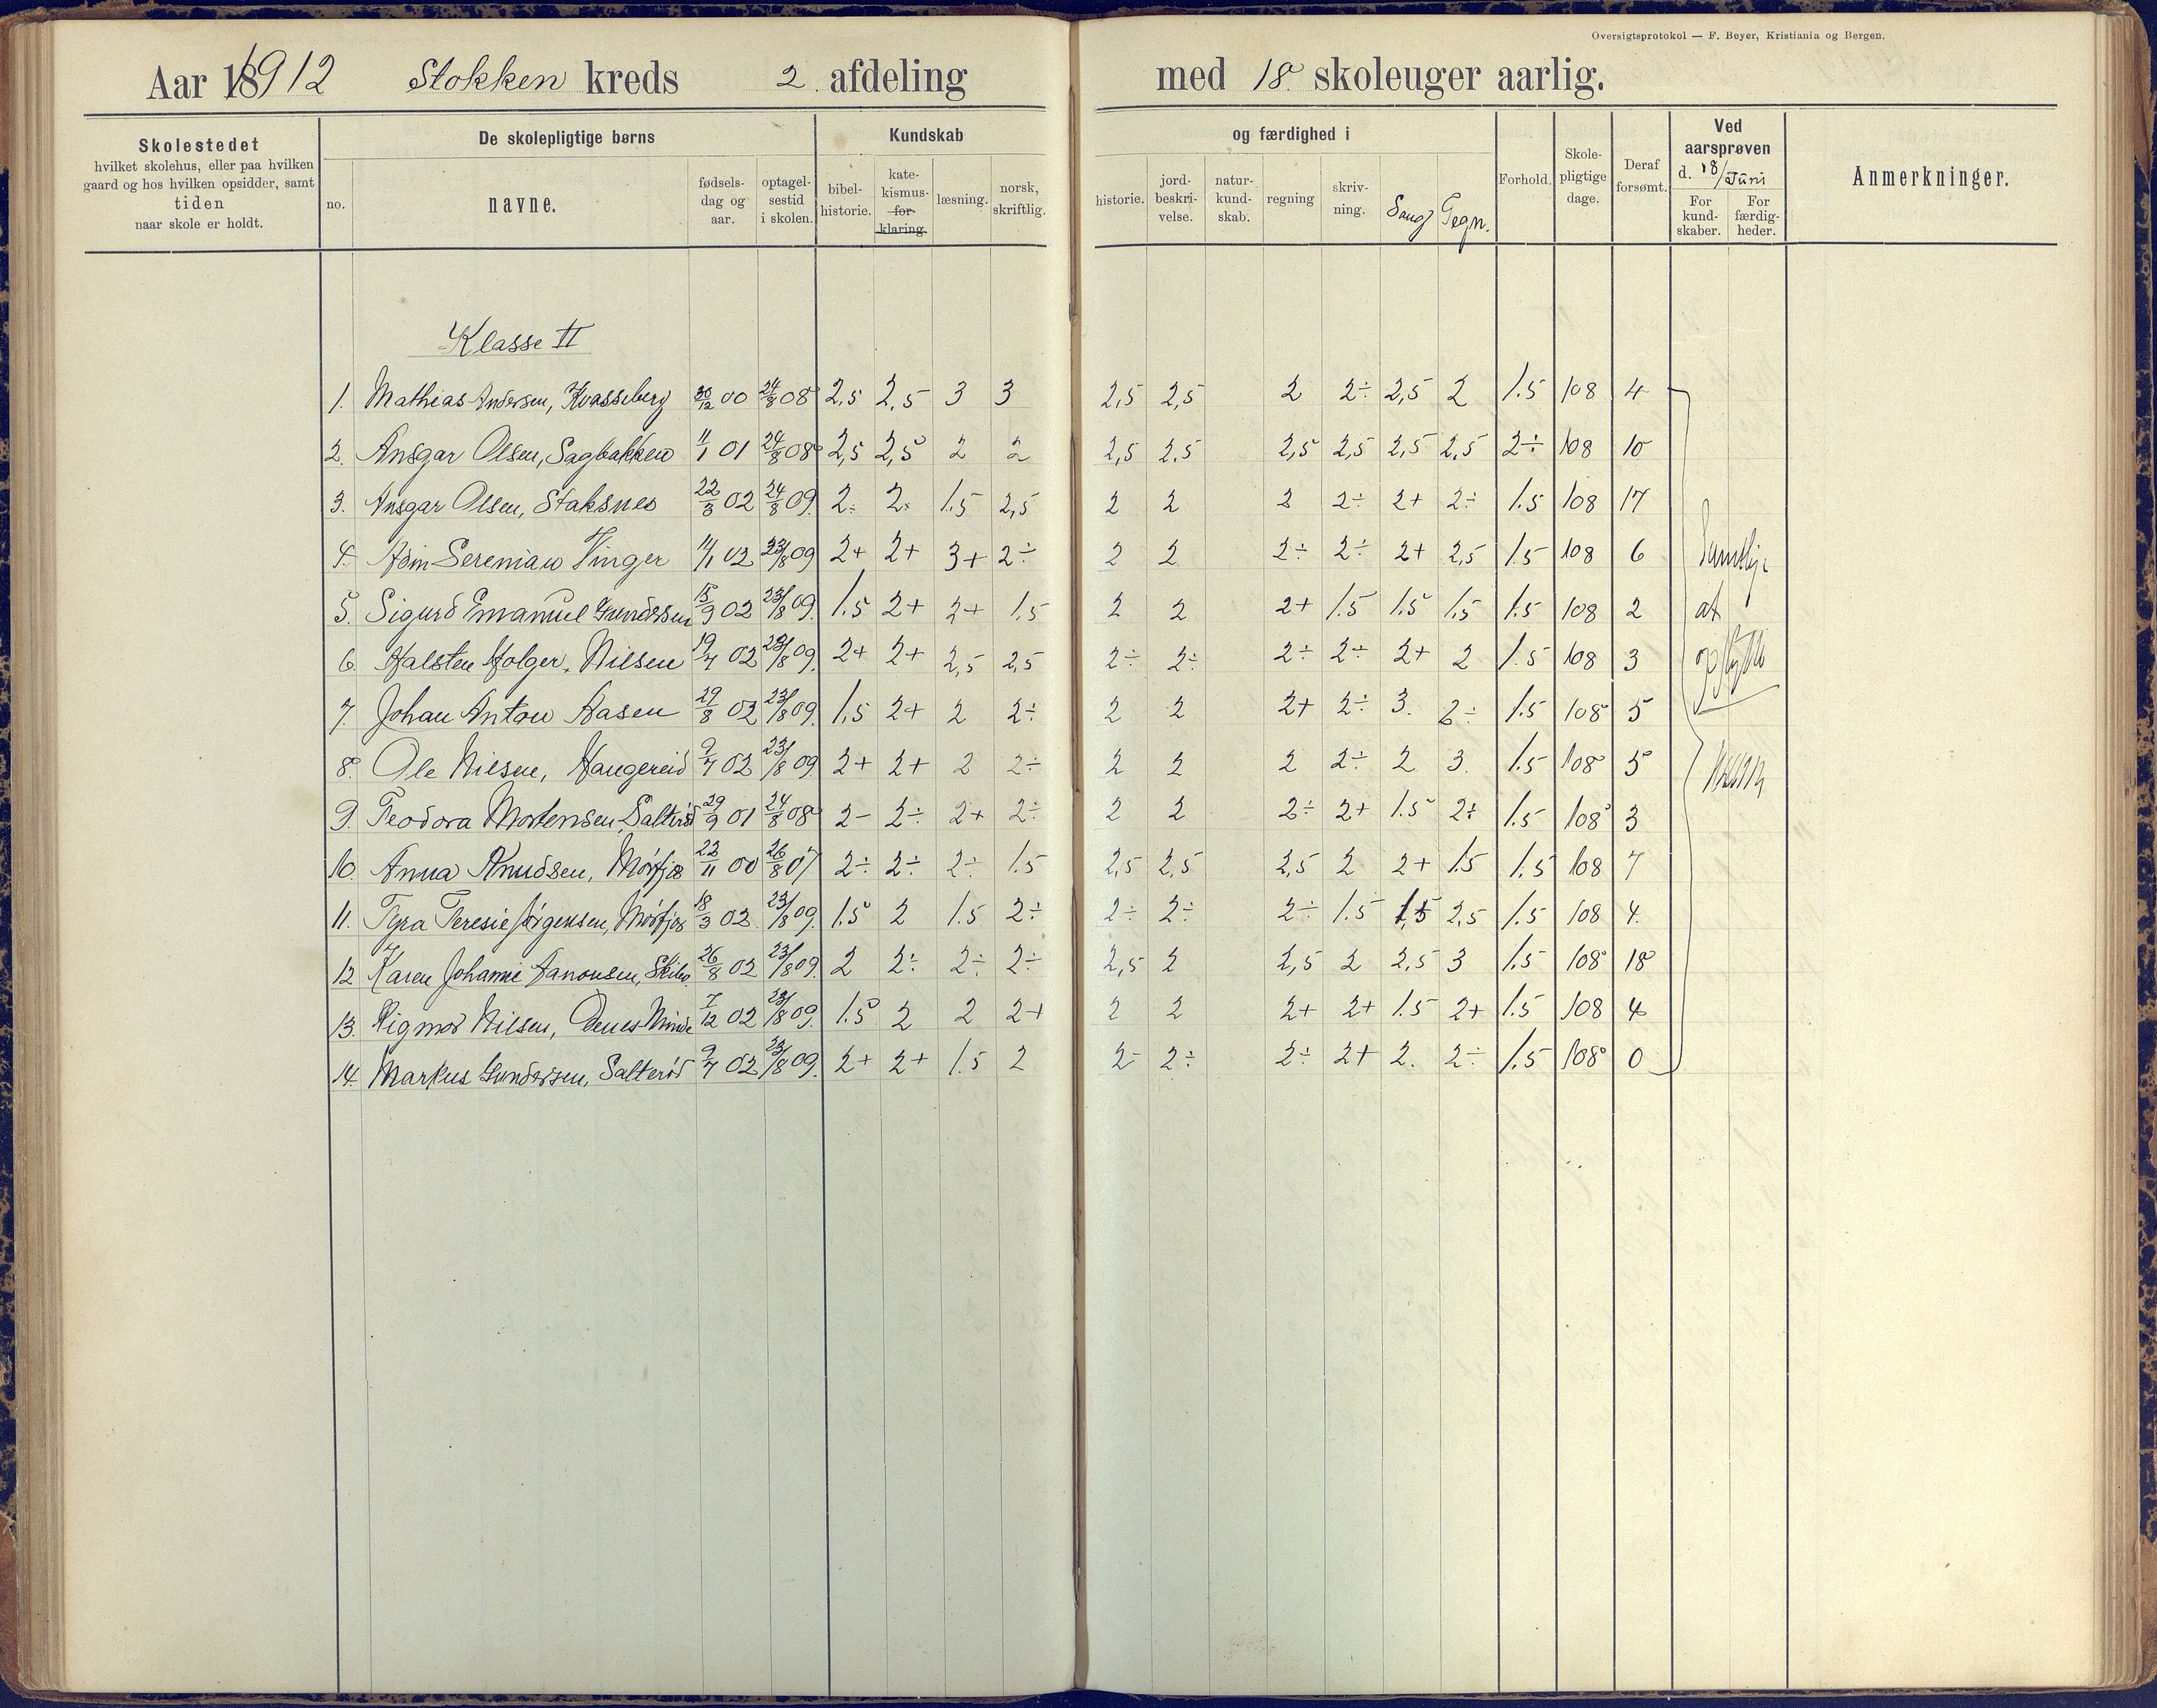 Oversigtsprotokol — F. Beyer, Kristiania og Bergen.
Aar 1912 Stokken kreds 2. afdeling med 18 skoleuger aarlig.
Skolestedet hvilket skolehus, eller paa hvilken gaard og hos hvilken opsidder, samt tiden naar skole er holdt.
De skolepligtige børns
no. navne. fødselsdag og aar. optagelsestid i skolen.
Kundskab og færdighed i
bibelhistorie. katekismus-forklaring læsning. norsk, skriftlig. historie. jordbeskrivelse. naturkundskab. regning skrivning. Sang Tegn.
Forhold. Skolepligtige dage. Deraf forsømt.
Ved aarsprøven d. 18/Juni
For kundskaber. For færdigheder.
Anmerkninger.
Klasse II
1. Mathias Andersen, Kvasseberg 30/12 00 24/8 08 2,5 2,5 3 3 2,5 2,5 2 2÷ 2,5 2 1.5 108 4
2. Ansgar Olsen, Sagbakken 11/1 01 24/8 08 2,5 2,5 2 2 2,5 2.5 2,5 2,5 2,5 2.5 2÷ 108 10
3. Ansgar Olsen, Staksnes 22/3 02 24/8 09. 2÷ 2÷ 1.5 2,5 2 2 2 2÷ 2+ 2÷ 1.5 108 17
4. Sereniau Vinger 14/1 02 23/8 09 2+ 2+ 3+ 2÷ 2 2 2÷ 2÷ 2+ 2,5 1.5 108 6
5. Sigurd Emanuel Gundersen 15/9 02 23/8 09. 1.5 2+ 2+ 1.5 2 2 2+ 1.5 1.5 1.5 1.5 108 2
6. Halsten Holger. Nilsen 19/7 02 23/8 09. 2+ 2+ 2,5 2,5 2÷ 2÷ 2÷ 2÷ 2+ 2 1.5 108 3
7. Johan Anton Aasen 29/8 02 23/8 09. 1.5 2+ 2 2÷ 2 2 2+ 2÷ 3. 2÷ 1.5 108 5
8. Ole Nilsen, Haugereid 9/7 02 23/8 09 2+ 2+ 2 2÷ 2 2 2 2÷ 2 3. 1.5 108 5
9. Teodora Mortensen, Salterød 29/9 01 24/8 08 2- 2÷ 2+ 2÷ 2 2 2÷ 2+ 1.5 2÷ 1.5 108 3
10. Anna Knudsen, Mørfjær 22/11 00 26/8 07 2÷ 2÷ 2÷ 1.5 2,5 2,5 2,5 2 2+ 1.5 1.5 108 7
11. Tyra Teresie Jørgensen, Mørfjær 18/3 02. 23/8 09. 1.5 2 1.5 2÷ 2÷ 2÷ 2÷ 1.5 1,5 2,5 1.5 108 4.
12 Karen Johanne Aanonsen, 26/8 02 23/8 09. 2 2÷ 2÷ 2÷ 2,5 2 2,5 2 2,5 3 1.5 108 18
13. Rigmor Nilsen, Minde 7/12 02 23/8 09. 1.5 2 2 2+ 2 2 2+ 2+ 1.5 2+ 1.5 108 4
14. Markus Gundersen, Salterød 9/7 02 23/8 09. 2+ 2+ 1.5 2 2- 2÷ 2÷ 2+ 2. 2÷ 1.5 108 0
Samtlige
at
opflytte